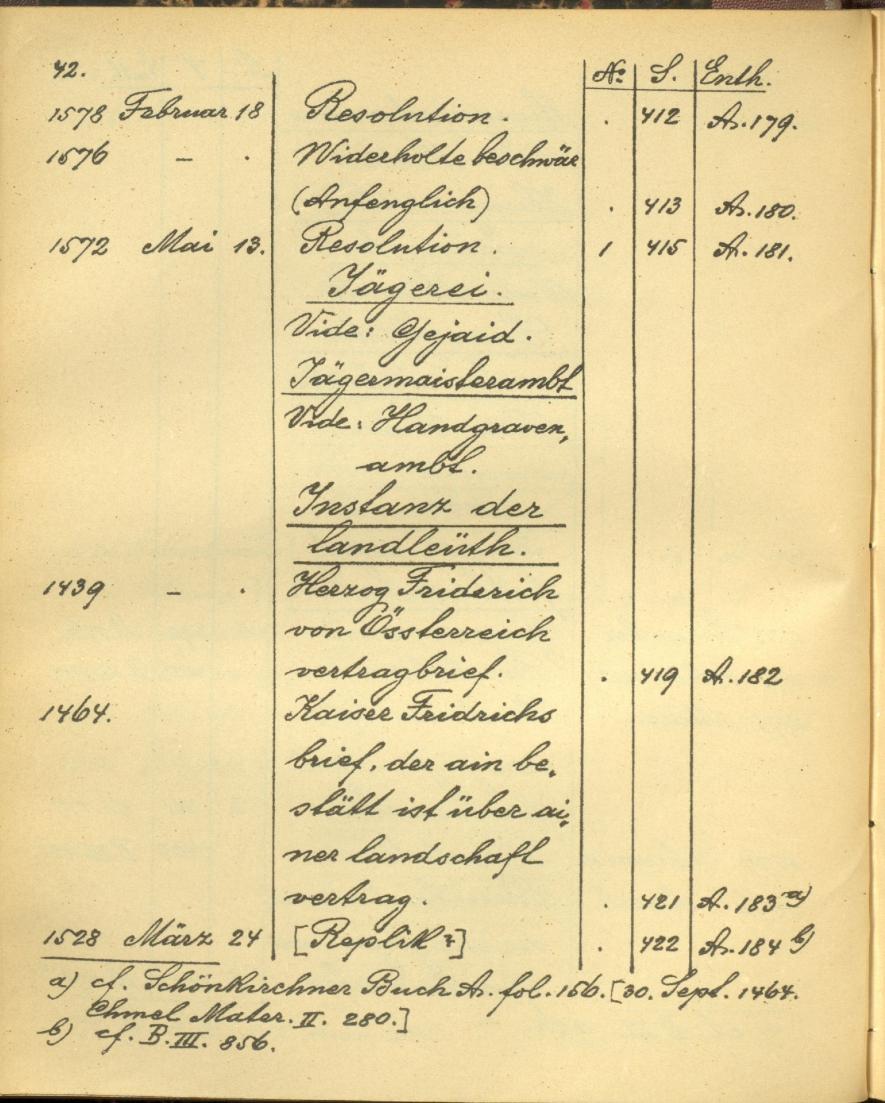 42. No S. Enth.
1578 Februar 18 Resolution . . 412 A. 179.
1576 – . Widerholte beschwär
(Anfenglich) . 413 A. 180.
1572 Mai 13. Resolution . 1 415 A. 181.
Jägerei .
Vide : Gejaid .
Jägermaisterambt
Vide : Handgraven„
ambt .
Instanz der
landleüth .
1439 – . Herzog Friderich
von Össterreich
vertragbrief . . 419 A. 182
1464. Kaiser Fridrichs
brief, der ain be„
stätt ist über ai„
ner landschaft
vertrag . . 421 A. 183 a)
1528 März 24 [Replik ?] . 422 A. 184 b)
a) cf. Schönkirchner Buch A. fol. 156. [30. Sept. 1464.
Chmel Mater. II. 280.]
b) cf. B. III. 856.